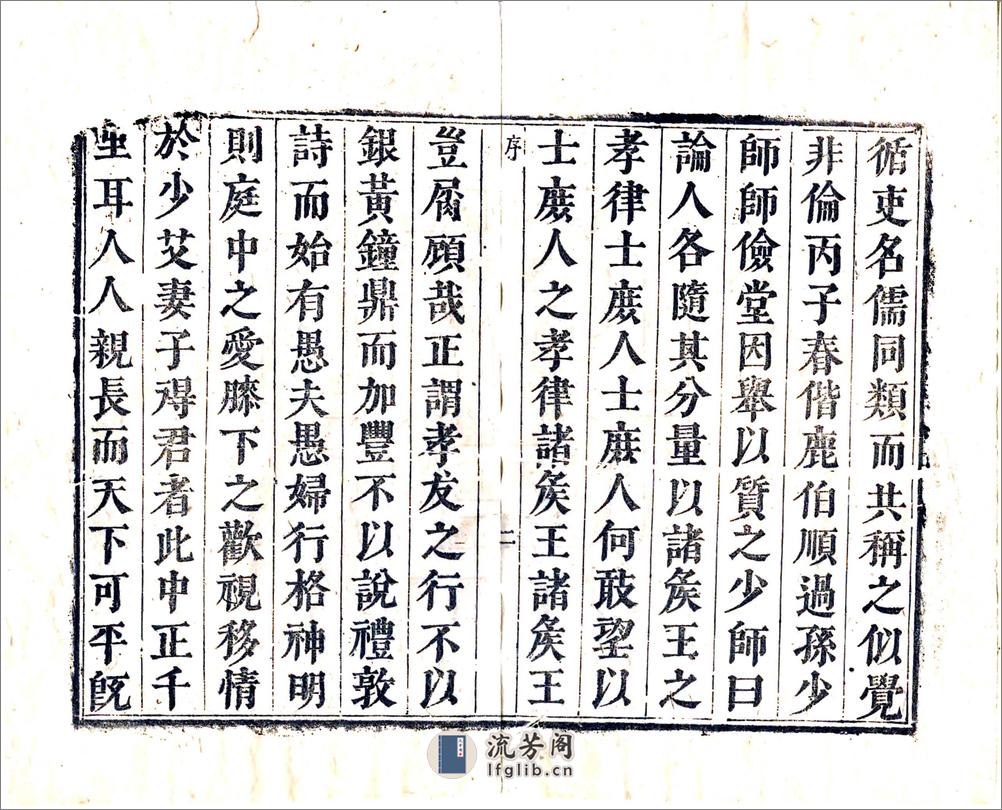 循吏名儒同類而共稱之似覺
非倫丙子春偕鹿伯順過孫少
師師儉堂因舉以質之少師曰
論人各隨其分量以諸矦王之
孝律士庶人士庶人何敢望以
士庶人之孝律諸矦王諸矦王
序
二
豈屑顧哉正謂孝友之行不以
銀黃鐘鼎而加豐不以說禮敦
詩而始有愚夫愚婦行格神明
則庭中之愛膝下之歡視移情
於少艾妻子得君者此中正千
里耳人人親長而天下可平旣
流芳阁
lfglib.cn